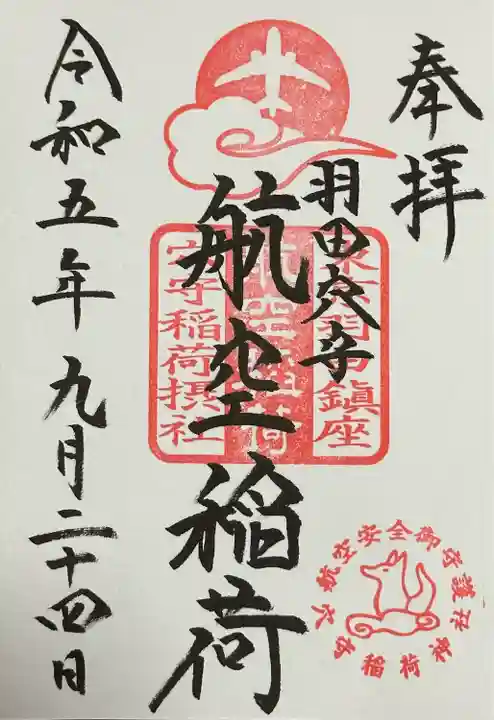 奉拝
羽田穴守
航空稲荷
令和五年九月二十四日
東京羽田鎮座
航空稲荷
穴守稲荷摂社
航空安全御守護
穴守稲荷神社